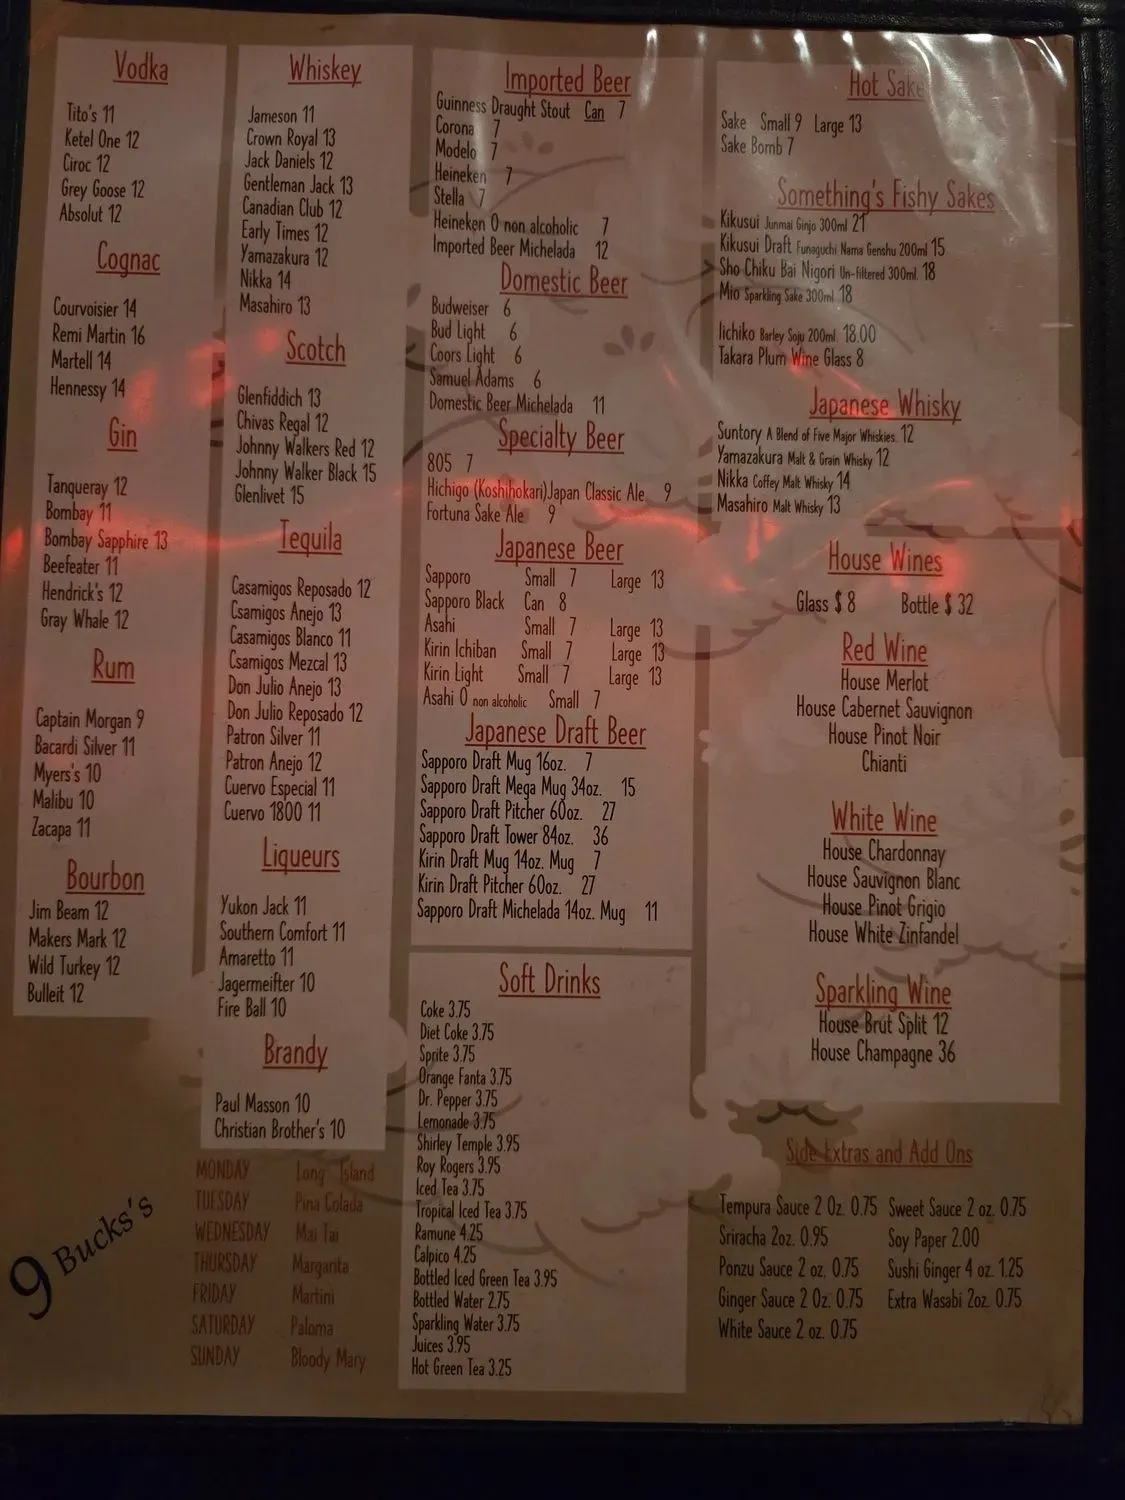 Vodka
Tito's 11
Ketel One 12
Ciroc 12
Grey Goose 12
Absolut 12
Cognac
Courvoisier 14
Remi Martin 16
Martell 14
Hennessy 14
Gin
Tanqueray 12
Bombay 11
Bombay Sapphire 13
Beefeater 11
Hendrick's 12
Gray Whale 12
Rum
Captain Morgan 9
Bacardi Silver 11
Myers's 10
Malibu 10
Zacapa 11
Bourbon
Jim Beam 12
Makers Mark 12
Wild Turkey 12
Bulleit 12
Whiskey
Jameson 11
Crown Royal 13
Jack Daniels 12
Gentleman Jack 13
Canadian Club 12
Early Times 12
Yamazakura 12
Nikka 14
Masahiro 13
Scotch
Glenfiddich 13
Chivas Regal 12
Johnny Walkers Red 12
Johnny Walker Black 15
Glenlivet 15
Tequila
Casamigos Reposado 12
Csamigos Anejo 13
Casamigos Blanco 11
Csamigos Mezcal 13
Don Julio Anejo 13
Don Julio Reposado 12
Patron Silver 11
Patron Anejo 12
Cuervo Especial 11
Cuervo 1800 11
Liqueurs
Yukon Jack 11
Southern Comfort 11
Amaretto 11
Jagermeifter 10
Fire Ball 10
Brandy
Paul Masson 10
Christian Brother's 10
9 Bucks's
MONDAY Long Island
TUESDAY Pina Colada
WEDNESDAY Mai Tai
THURSDAY Margarita
FRIDAY Martini
SATURDAY Paloma
SUNDAY Bloody Mary
Imported Beer
Guinness Draught Stout Can 7
Corona 7
Modelo 7
Heineken 7
Stella 7
Heineken 0 non alcoholic 7
Imported Beer Michelada 12
Domestic Beer
Budweiser 6
Bud Light 6
Coors Light 6
Samuel Adams 6
Domestic Beer Michelada 11
Specialty Beer
805 7
Hichigo (Koshihokari)Japan Classic Ale 9
Fortuna Sake Ale 9
Japanese Beer
Sapporo Small 7 Large 13
Sapporo Black Can 8
Asahi Small 7 Large 13
Kirin Ichiban Small 7 Large 13
Kirin Light Small 7 Large 13
Asahi 0 non alcoholic Small 7
Japanese Draft Beer
Sapporo Draft Mug 16oz. 7
Sapporo Draft Mega Mug 34oz. 15
Sapporo Draft Pitcher 60oz. 27
Sapporo Draft Tower 84oz. 36
Kirin Draft Mug 14oz. Mug 7
Kirin Draft Pitcher 60oz. 27
Sapporo Draft Michelada 14oz. Mug 11
Soft Drinks
Coke 3.75
Diet Coke 3.75
Sprite 3.75
Orange Fanta 3.75
Dr. Pepper 3.75
Lemonade 3.75
Shirley Temple 3.95
Roy Rogers 3.95
Iced Tea 3.75
Tropical Iced Tea 3.75
Ramune 4.25
Calpico 4.25
Bottled Iced Green Tea 3.95
Bottled Water 2.75
Sparkling Water 3.75
Juices 3.95
Hot Green Tea 3.25
Hot Sake
Sake Small 9 Large 13
Sake Bomb 7
Something's Fishy Sakes
Kikusui Junmai Ginjo 300ml 21
Kikusui Draft Funaguchi Nama Genshu 200ml 15
Sho Chiku Bai Nigori Un-filtered 300ml. 18
Mio Sparkling Sake 300ml 18
Iichiko Barley Soju 200ml 18.00
Takara Plum Wine Glass 8
Japanese Whisky
Suntory A Blend of Five Major Whiskies. 12
Yamazakura Malt & Grain Whisky 12
Nikka Coffey Malt Whisky 14
Masahiro Malt Whisky 13
House Wines
Glass $ 8 Bottle $ 32
Red Wine
House Merlot
House Cabernet Sauvignon
House Pinot Noir
Chianti
White Wine
House Chardonnay
House Sauvignon Blanc
House Pinot Grigio
House White Zinfandel
Sparkling Wine
House Brut Split 12
House Champagne 36
Side Extras and Add Ons
Tempura Sauce 2 Oz. 0.75 Sweet Sauce 2 oz. 0.75
Sriracha 2oz. 0.95 Soy Paper 2.00
Ponzu Sauce 2 oz. 0.75 Sushi Ginger 4 oz. 1.25
Ginger Sauce 2 Oz. 0.75 Extra Wasabi 2oz. 0.75
White Sauce 2 oz. 0.75